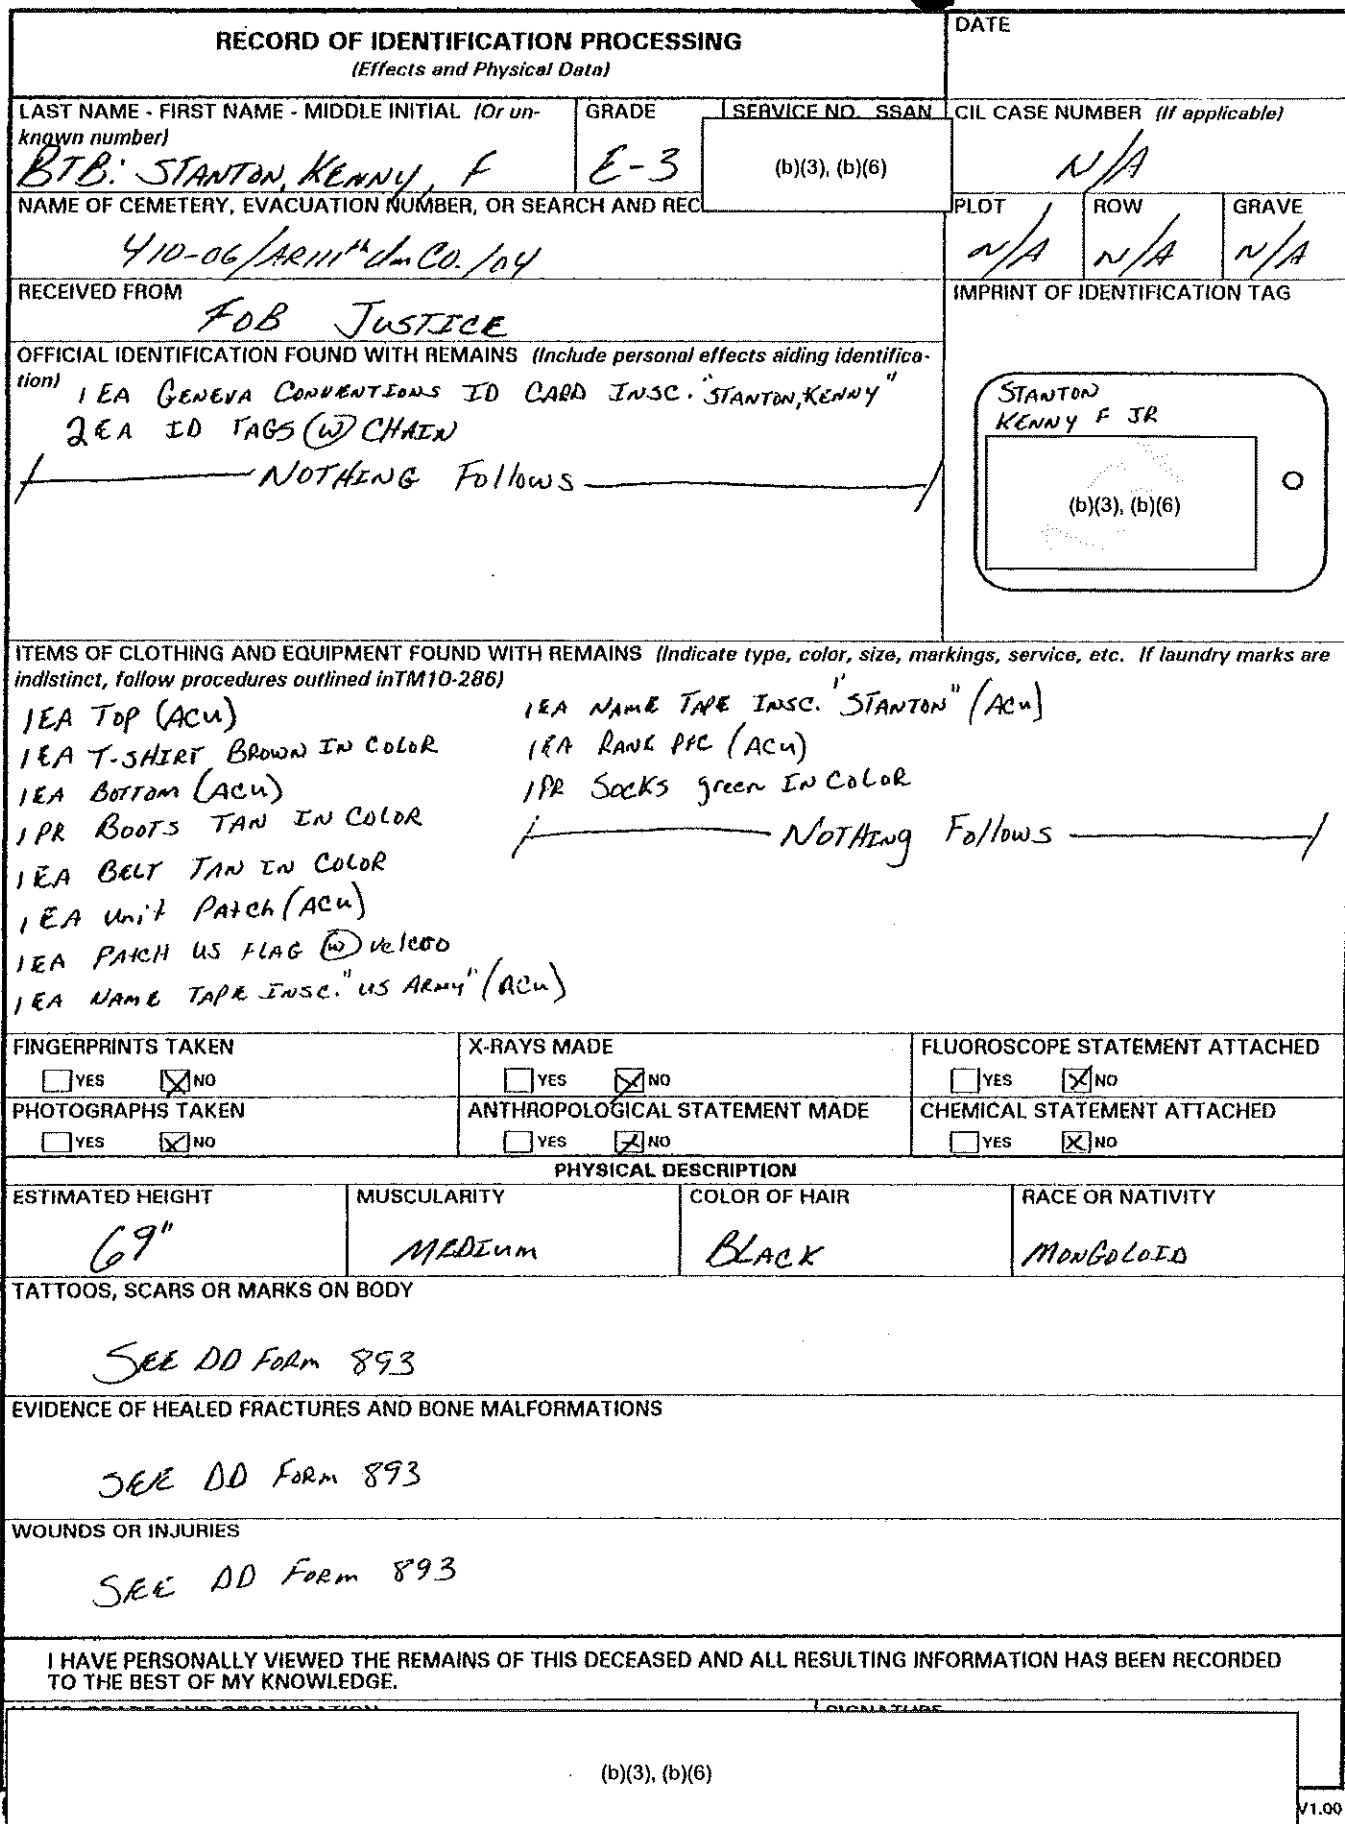 RECORD OF IDENTIFICATION PROCESSING
(Effects and Physical Data)
DATE
LAST NAME - FIRST NAME - MIDDLE INITIAL (Or un-
known number)
BTB: STANTON, KENNY, F
GRADE
E-3
SERVICE NO. SSAN
(b)(3), (b)(6)
CIL CASE NUMBER (If applicable)
N/A
NAME OF CEMETERY, EVACUATION NUMBER, OR SEARCH AND REC
410-06/AR111th CO./04
PLOT
N/A
ROW
N/A
GRAVE
N/A
RECEIVED FROM
FOB JUSTICE
IMPRINT OF IDENTIFICATION TAG
STANTON
KENNY F JR
(b)(3), (b)(6)
OFFICIAL IDENTIFICATION FOUND WITH REMAINS (Include personal effects aiding identifica-
tion)
1 EA GENEVA CONVENTIONS ID CARD INSC. "STANTON, KENNY"
2 EA ID TAGS (W) CHAIN
NOTHING Follows
ITEMS OF CLOTHING AND EQUIPMENT FOUND WITH REMAINS (Indicate type, color, size, markings, service, etc. If laundry marks are
indistinct, follow procedures outlined inTM10-286)
1 EA TOP (ACU)
1 EA T-SHIRT BROWN IN COLOR
1 EA BOTTOM (ACU)
1 PR BOOTS TAN IN COLOR
1 EA BELT TAN IN COLOR
1 EA Unit PATCH (ACU)
1 EA PATCH US FLAG (W) velcro
1 EA NAME TAPE INSC. "US ARMY" (ACU)
1 EA NAME TAPE INSC. "STANTON" (ACU)
1 EA RANK PFC (ACU)
1 PR SOCKS green IN COLOR
NOTHING Follows
FINGERPRINTS TAKEN
YES NO
X-RAYS MADE
YES NO
FLUOROSCOPE STATEMENT ATTACHED
YES NO
PHOTOGRAPHS TAKEN
YES NO
ANTHROPOLOGICAL STATEMENT MADE
YES NO
CHEMICAL STATEMENT ATTACHED
YES NO
PHYSICAL DESCRIPTION
ESTIMATED HEIGHT
69"
MUSCULARITY
MEDIUM
COLOR OF HAIR
BLACK
RACE OR NATIVITY
MONGOLOID
TATTOOS, SCARS OR MARKS ON BODY
SEE DD FORM 893
EVIDENCE OF HEALED FRACTURES AND BONE MALFORMATIONS
SEE DD FORM 893
WOUNDS OR INJURIES
SEE DD FORM 893
I HAVE PERSONALLY VIEWED THE REMAINS OF THIS DECEASED AND ALL RESULTING INFORMATION HAS BEEN RECORDED
TO THE BEST OF MY KNOWLEDGE.
SIGNATURE
(b)(3), (b)(6)
V1.00